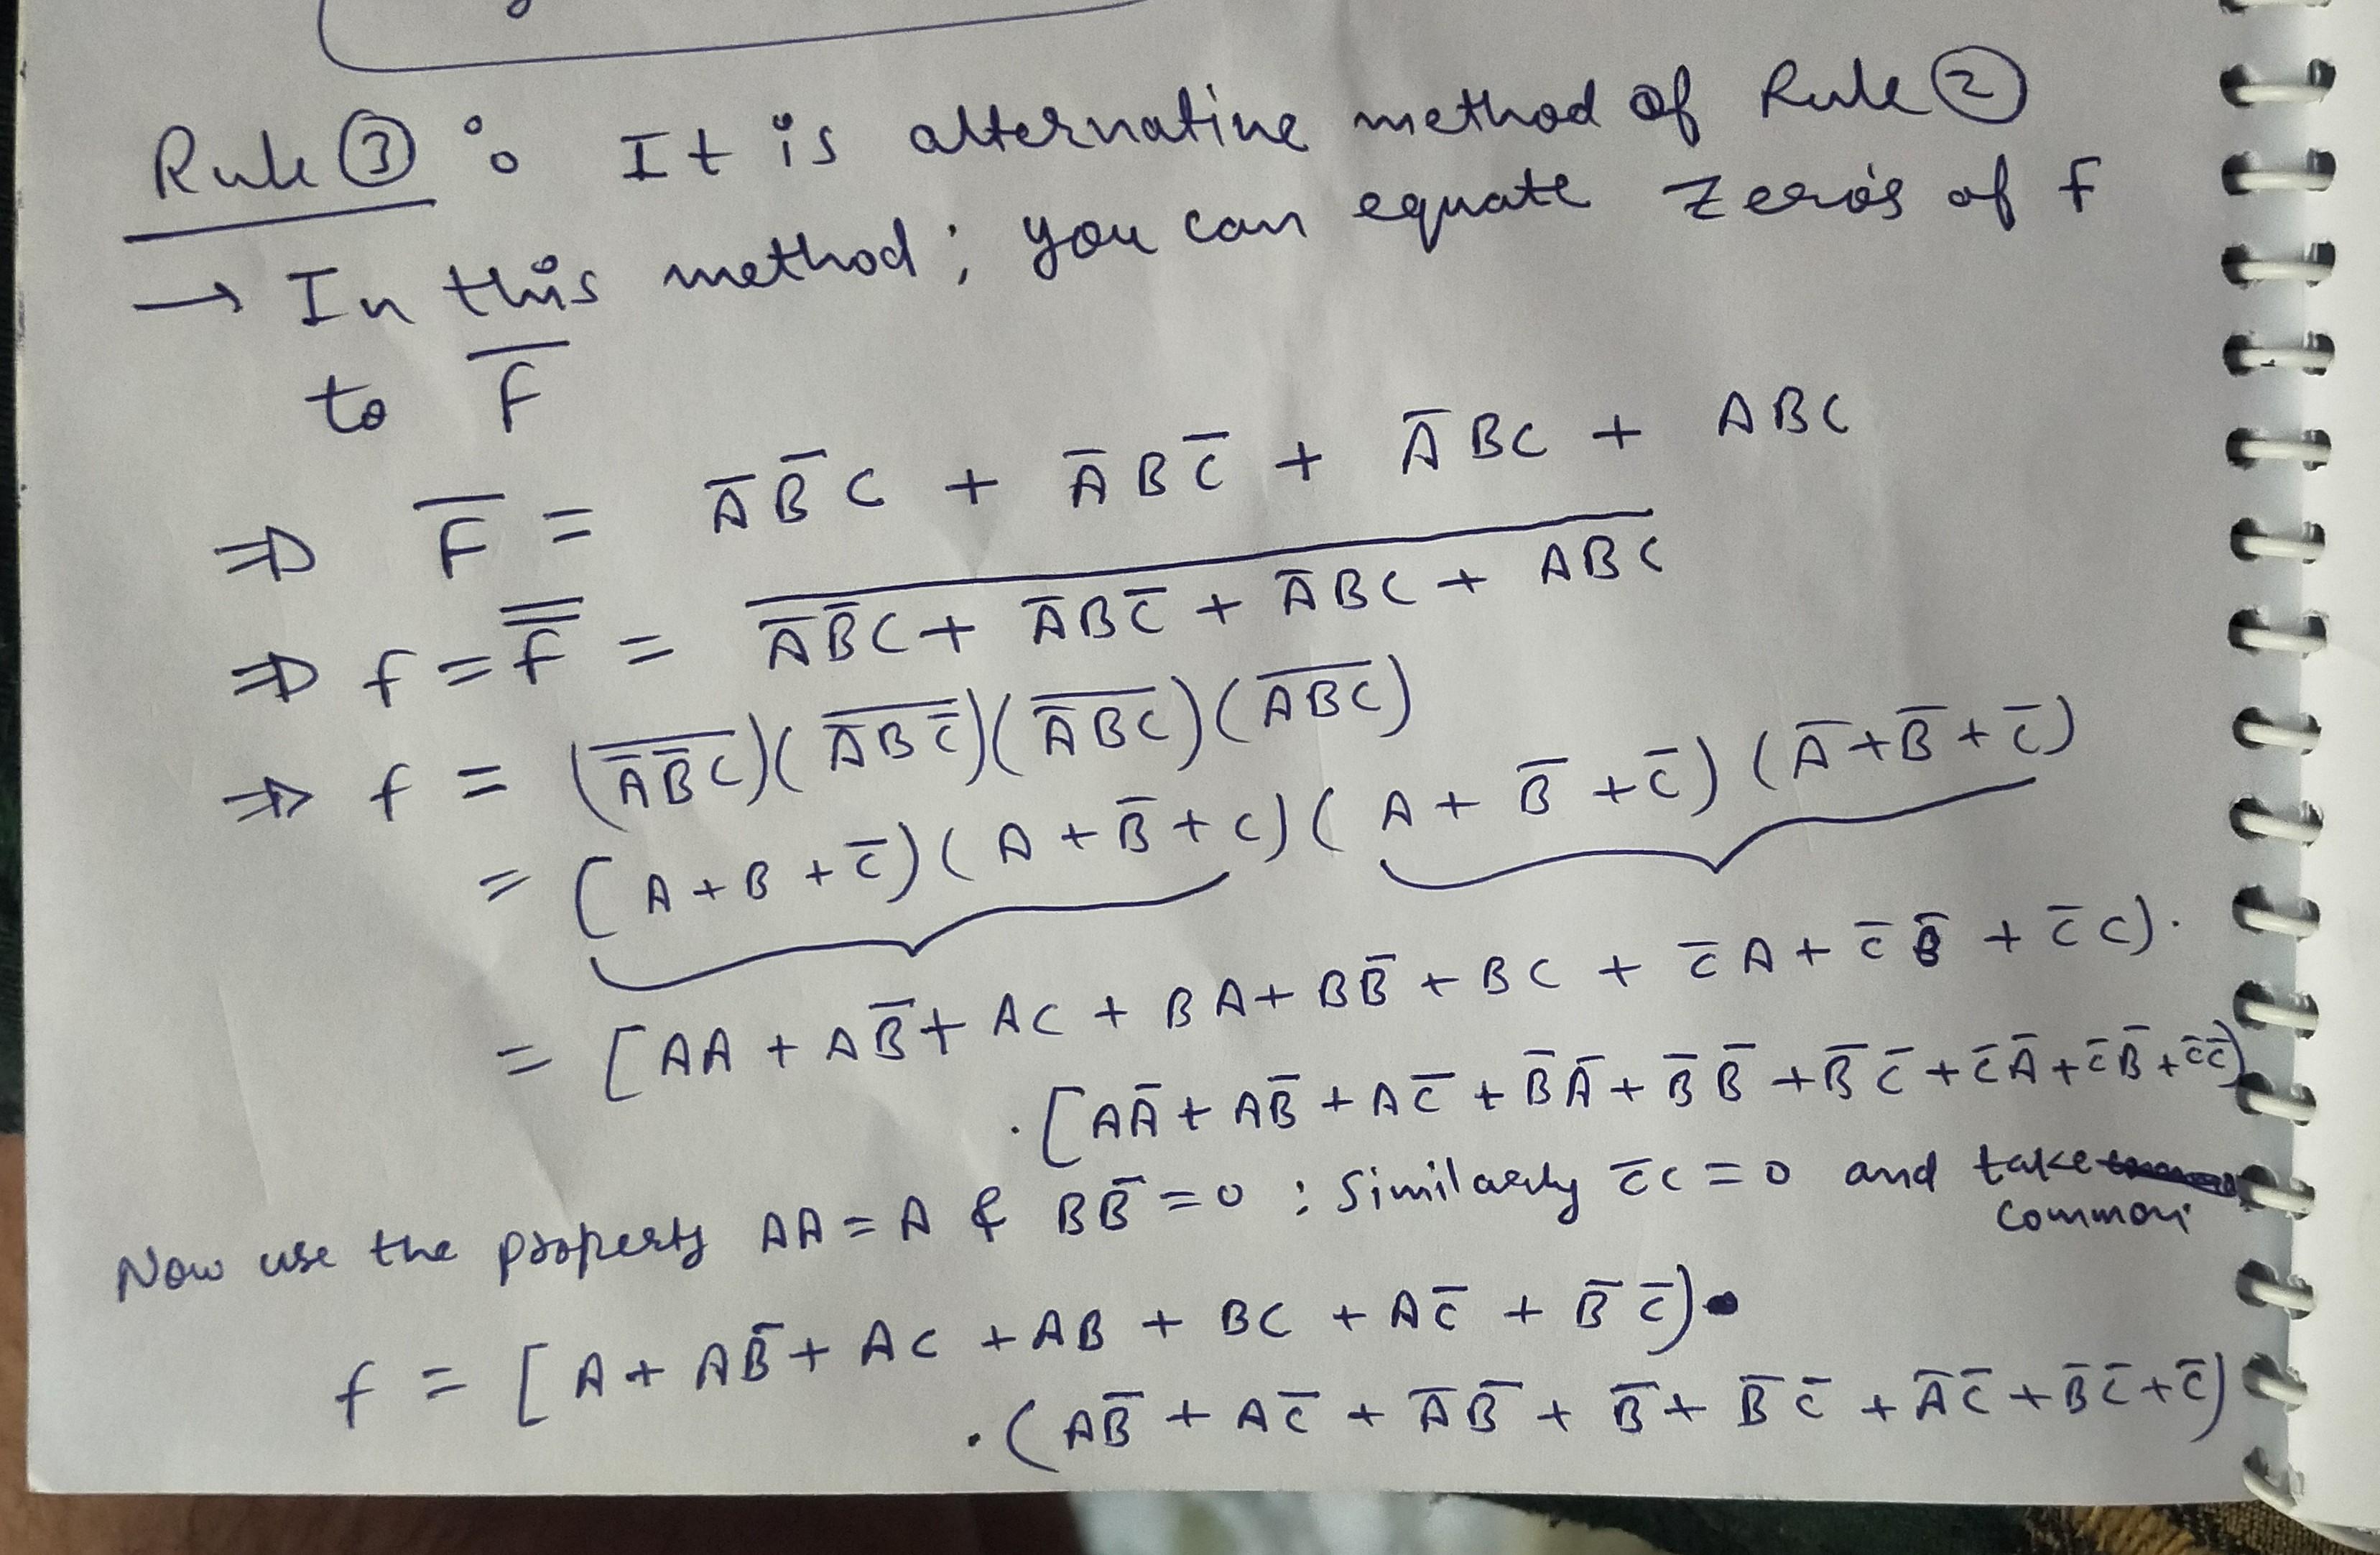 Rule ③ : It is alternative method of Rule ②
→ In this method ; you can equate Zero's of f
to F̅
⇒ F̅ = A̅B̅C + A̅BC̅ + A̅BC + ABC
⇒ f = f̿ = \overline{A̅B̅C + A̅BC̅ + A̅BC + ABC}
⇒ f = (\overline{A̅B̅C})(\overline{A̅BC̅})(\overline{A̅BC})(\overline{ABC})
= (A+B+C̅)(A+B̅+C)(A+B̅+C̅)(A̅+B̅+C̅)
= [AA + AB̅ + AC + BA + BB̅ + BC + C̅A + C̅B̅ + C̅C).
.[AA̅ + AB̅ + AC̅ + B̅A̅ + B̅B̅ + B̅C̅ + C̅A̅ + C̅B̅ + C̅C̅)
Now use the property AA = A & BB̅ = 0 : Similarly C̅C = 0 and take
common
f = [A + AB̅ + AC + AB + BC + AC̅ + B̅C̅).
.(AB̅ + AC̅ + A̅B̅ + B̅ + B̅C̅ + A̅C̅ + B̅C̅ + C̅)